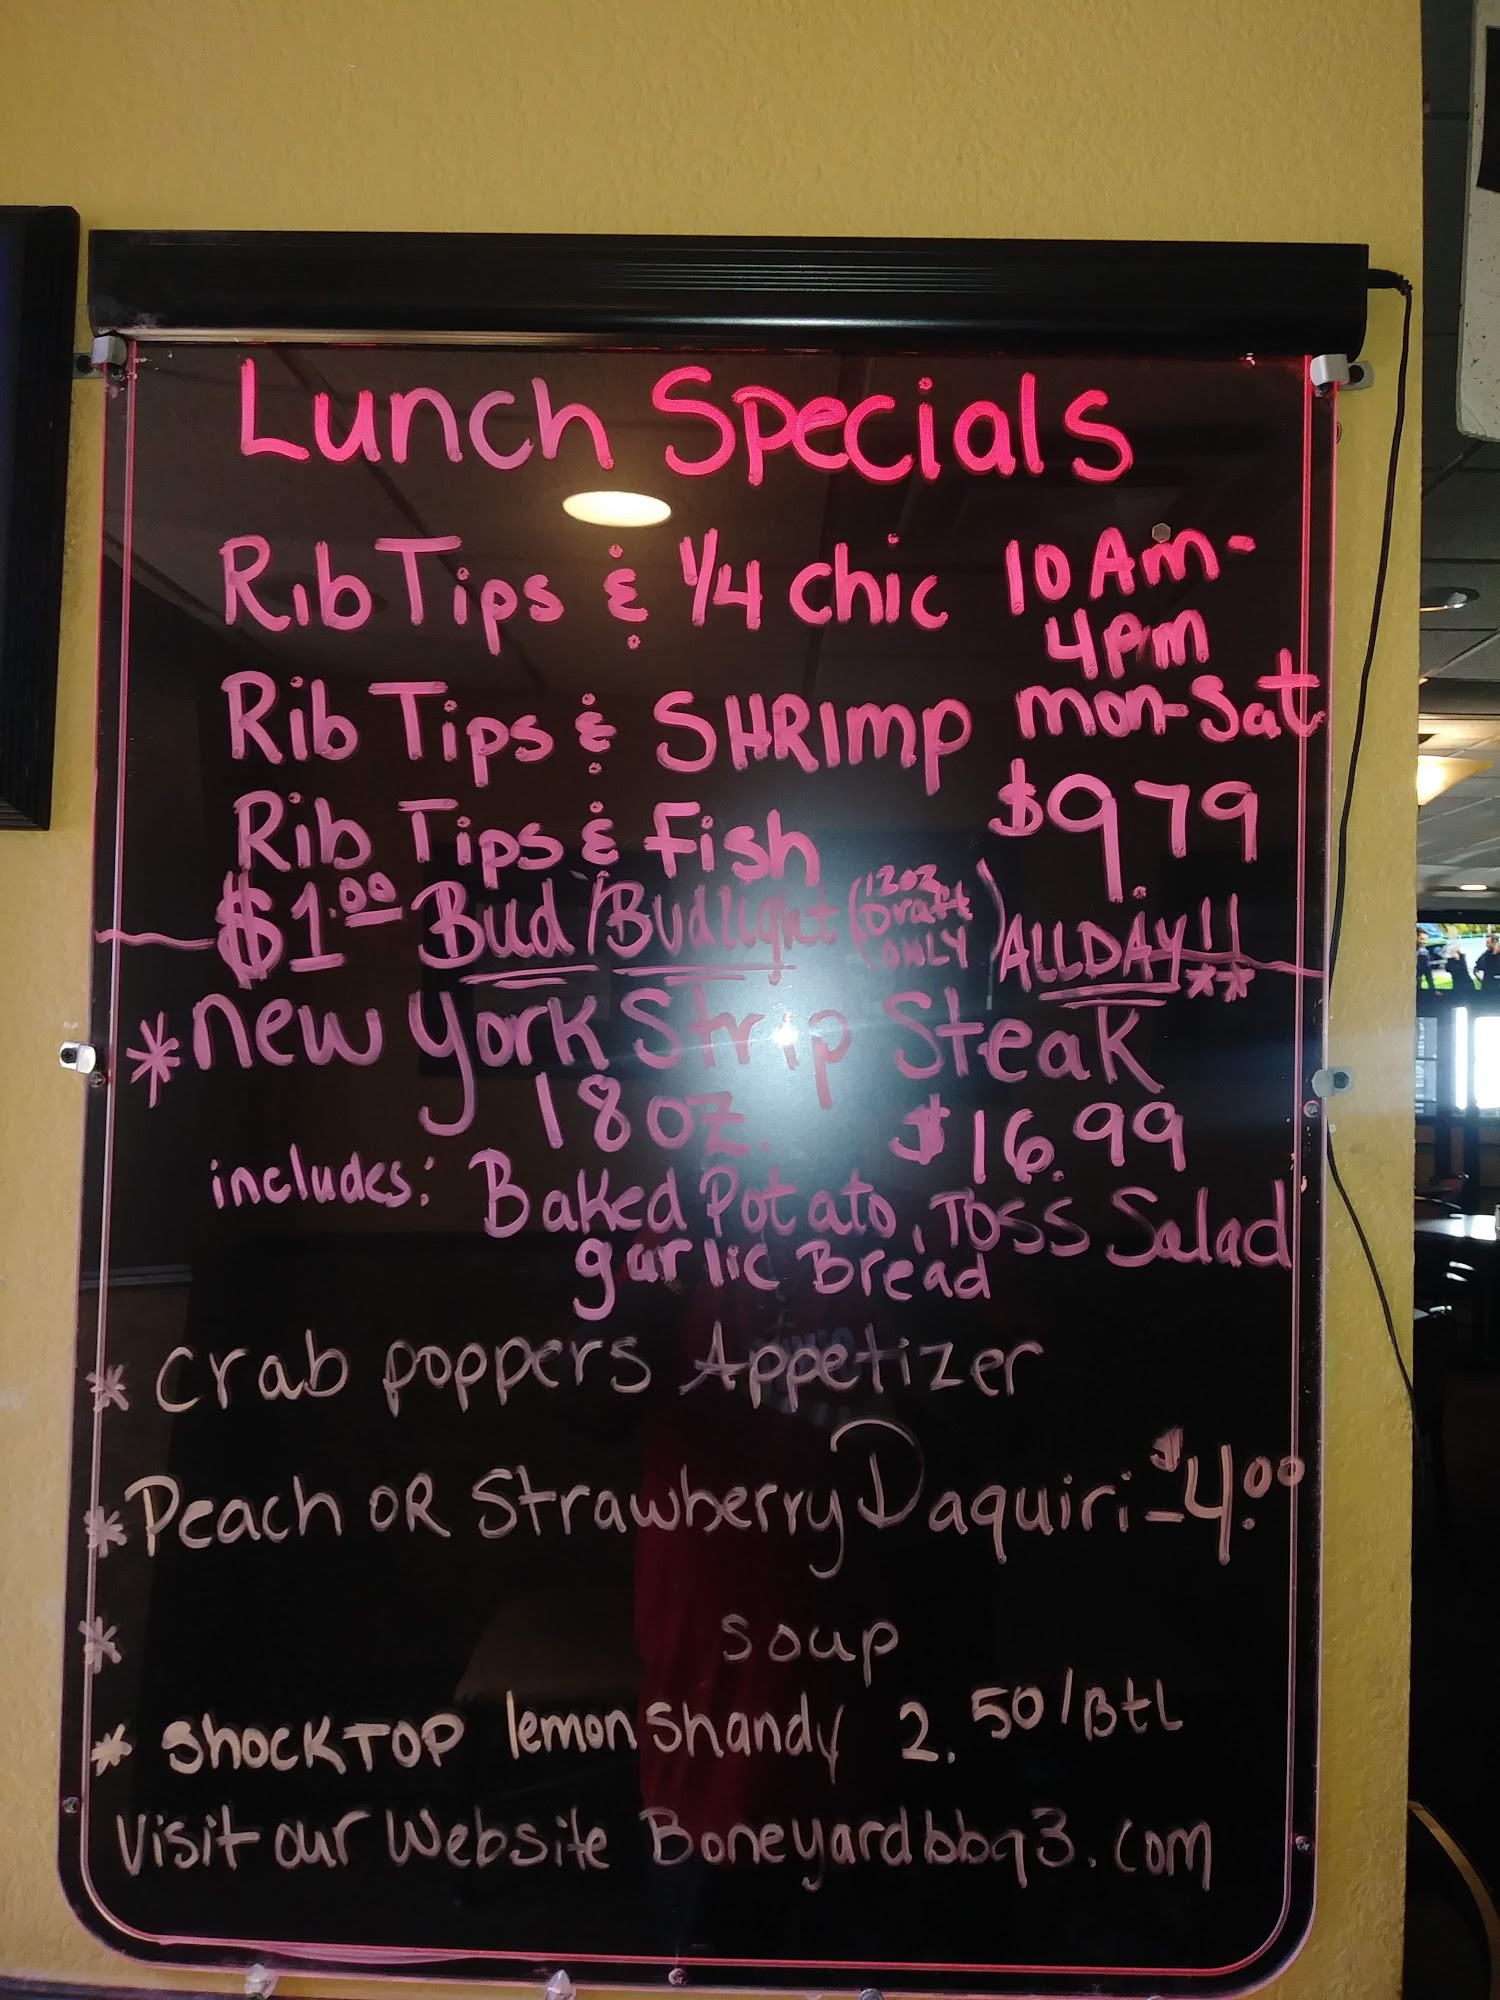 Lunch Specials
Rib Tips & 1/4 Chic 10 Am-
4pm
Rib Tips & SHRImp mon-Sat
Rib Tips & Fish $979
$1.00 Bud/Budlight (12oz Draft ONLY) ALLDAY!!
**
*new York Strip Steak
18oz. $16.99
includes: Baked Potato, Toss Salad
garlic Bread
* Crab poppers Appetizer
* Peach OR Strawberry Daquiri - $4.00
* Soup
* SHOCKTOP lemon Shandy 2.50/Btl
Visit our Website Boneyardbbq3.com